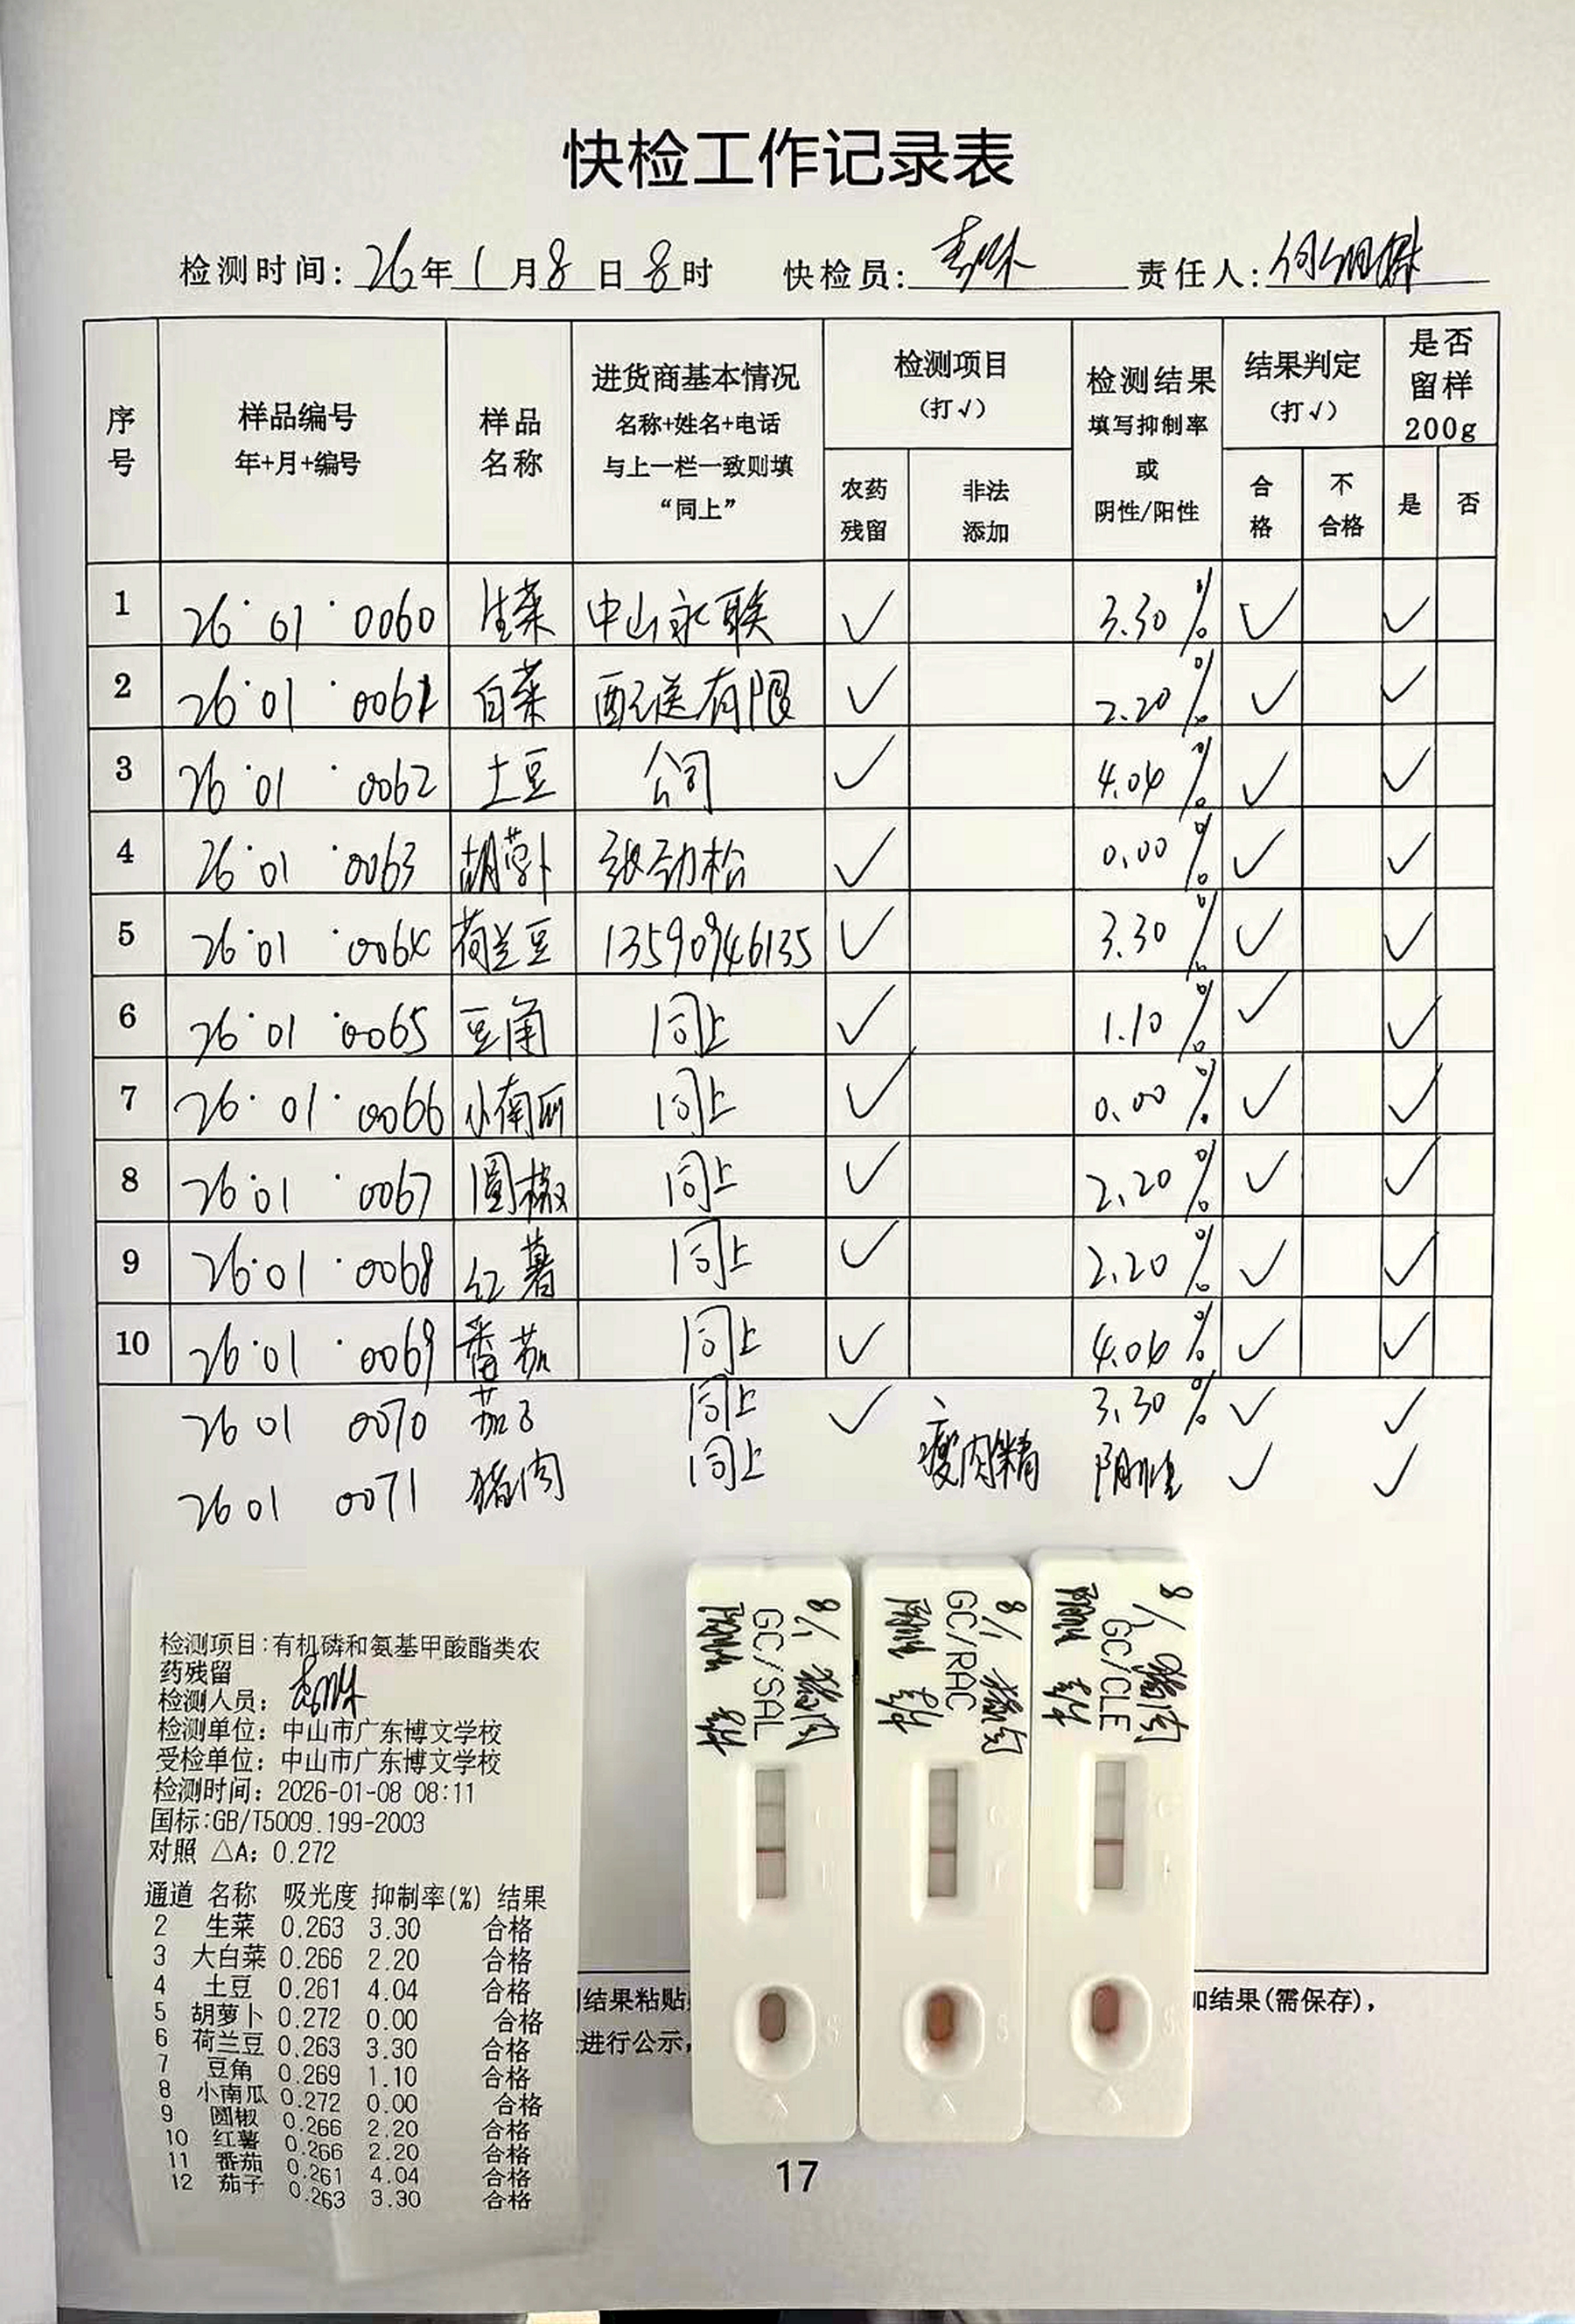 快检工作记录表
检测时间: 26年1月8日8时 快检员: 责任人:
序号 样品编号 年+月+编号 样品名称 进货商基本情况 名称+姓名+电话 与上一栏一致则填“同上” 检测项目(打√) 农药残留 非法添加 检测结果 填写抑制率 或 阴性/阳性 结果判定(打√) 合格 不合格 是否留样200g 是 否
1 26·01·0060 生菜 中山永联 ✓ 3.30% ✓ ✓
2 26·01·0061 白菜 配送有限 ✓ 2.20% ✓ ✓
3 26·01·0062 土豆 公司 ✓ 4.04% ✓ ✓
4 26·01·0063 胡萝卜 张劲松 ✓ 0.00% ✓ ✓
5 26·01·0064 荷兰豆 13590946135 ✓ 3.30% ✓ ✓
6 26·01·0065 豆角 同上 ✓ 1.10% ✓ ✓
7 26·01·0066 小南瓜 同上 ✓ 0.00% ✓ ✓
8 26·01·0067 圆椒 同上 ✓ 2.20% ✓ ✓
9 26·01·0068 红薯 同上 ✓ 2.20% ✓ ✓
10 26·01·0069 番茄 同上 ✓ 4.04% ✓ ✓
26 01 0070 茄子 同上 ✓ 3.30% ✓ ✓
26 01 0071 猪肉 同上 瘦肉精 阴性 ✓ ✓
检测项目:有机磷和氨基甲酸酯类农
药残留
检测人员:
检测单位: 中山市广东博文学校
受检单位: 中山市广东博文学校
检测时间: 2026-01-08 08:11
国标:GB/T5009.199-2003
对照 △A: 0.272
通道 名称 吸光度 抑制率(%) 结果
2 生菜 0.263 3.30 合格
3 大白菜 0.266 2.20 合格
4 土豆 0.261 4.04 合格
5 胡萝卜 0.272 0.00 合格
6 荷兰豆 0.263 3.30 合格
7 豆角 0.269 1.10 合格
8 小南瓜 0.272 0.00 合格
9 圆椒 0.266 2.20 合格
10 红薯 0.266 2.20 合格
11 番茄 0.261 4.04 合格
12 茄子 0.263 3.30 合格
8/1 猪肉
GC/SAL
阴性
C
T
S
8/1 猪肉
GC/RAC
阴性
C
T
S
8/1 猪肉
GC/CLE
阴性
C
T
S
结果粘贴
加结果(需保存),
进行公示,
17